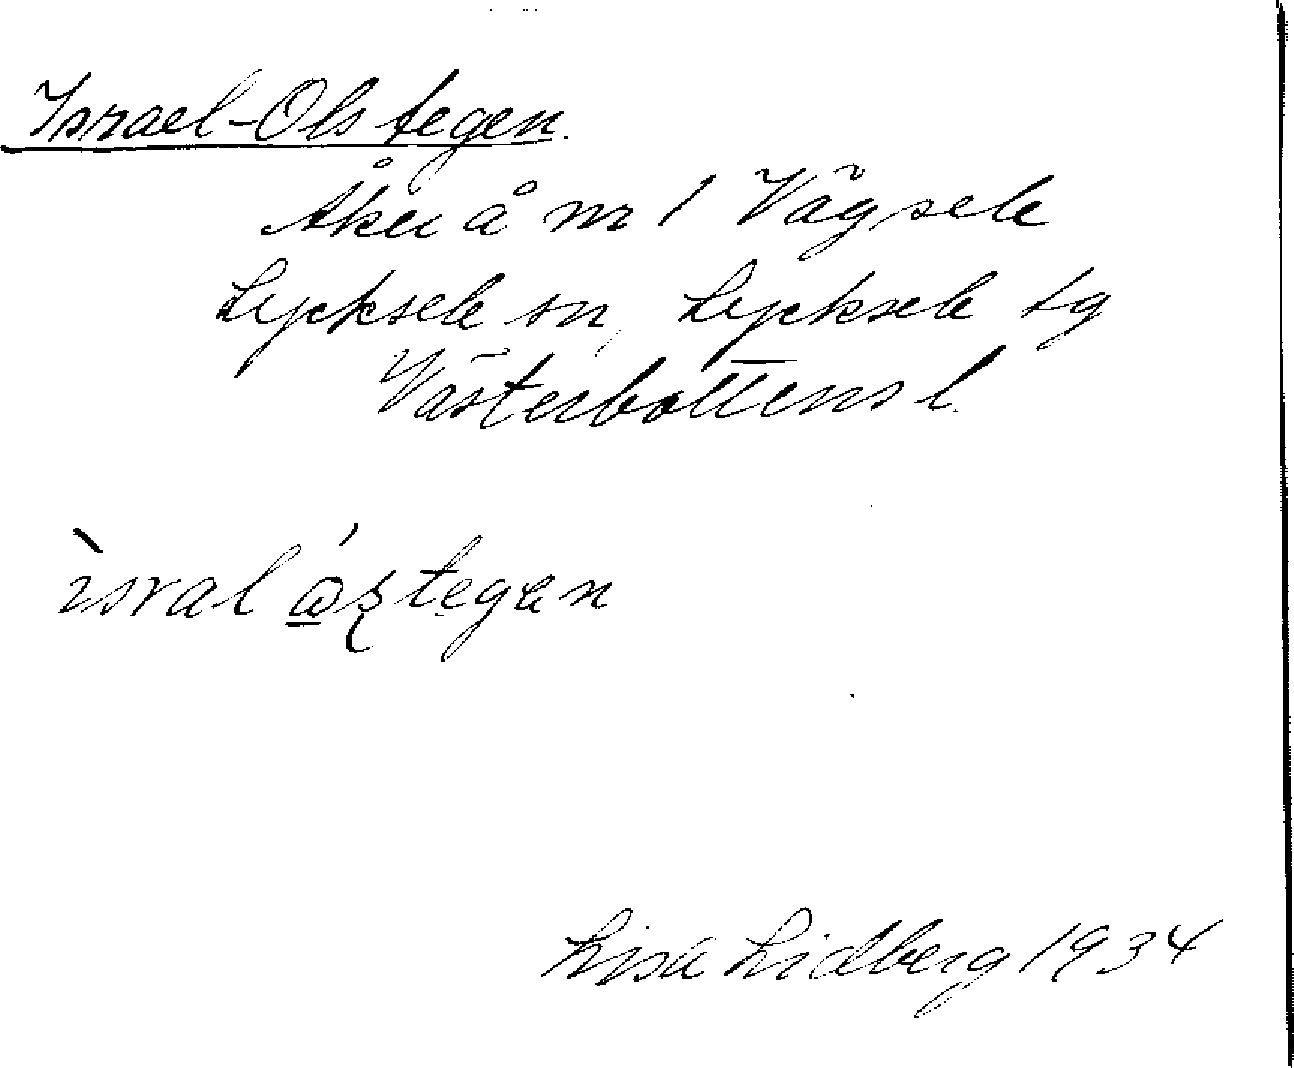 Israel-Olstegen.
Åker å nr 1 Vägsele
Lycksele sn, Lycksele tg
Västerbottens l.
ìsral ó̲ʂtegen
Lisa Lidberg 1934